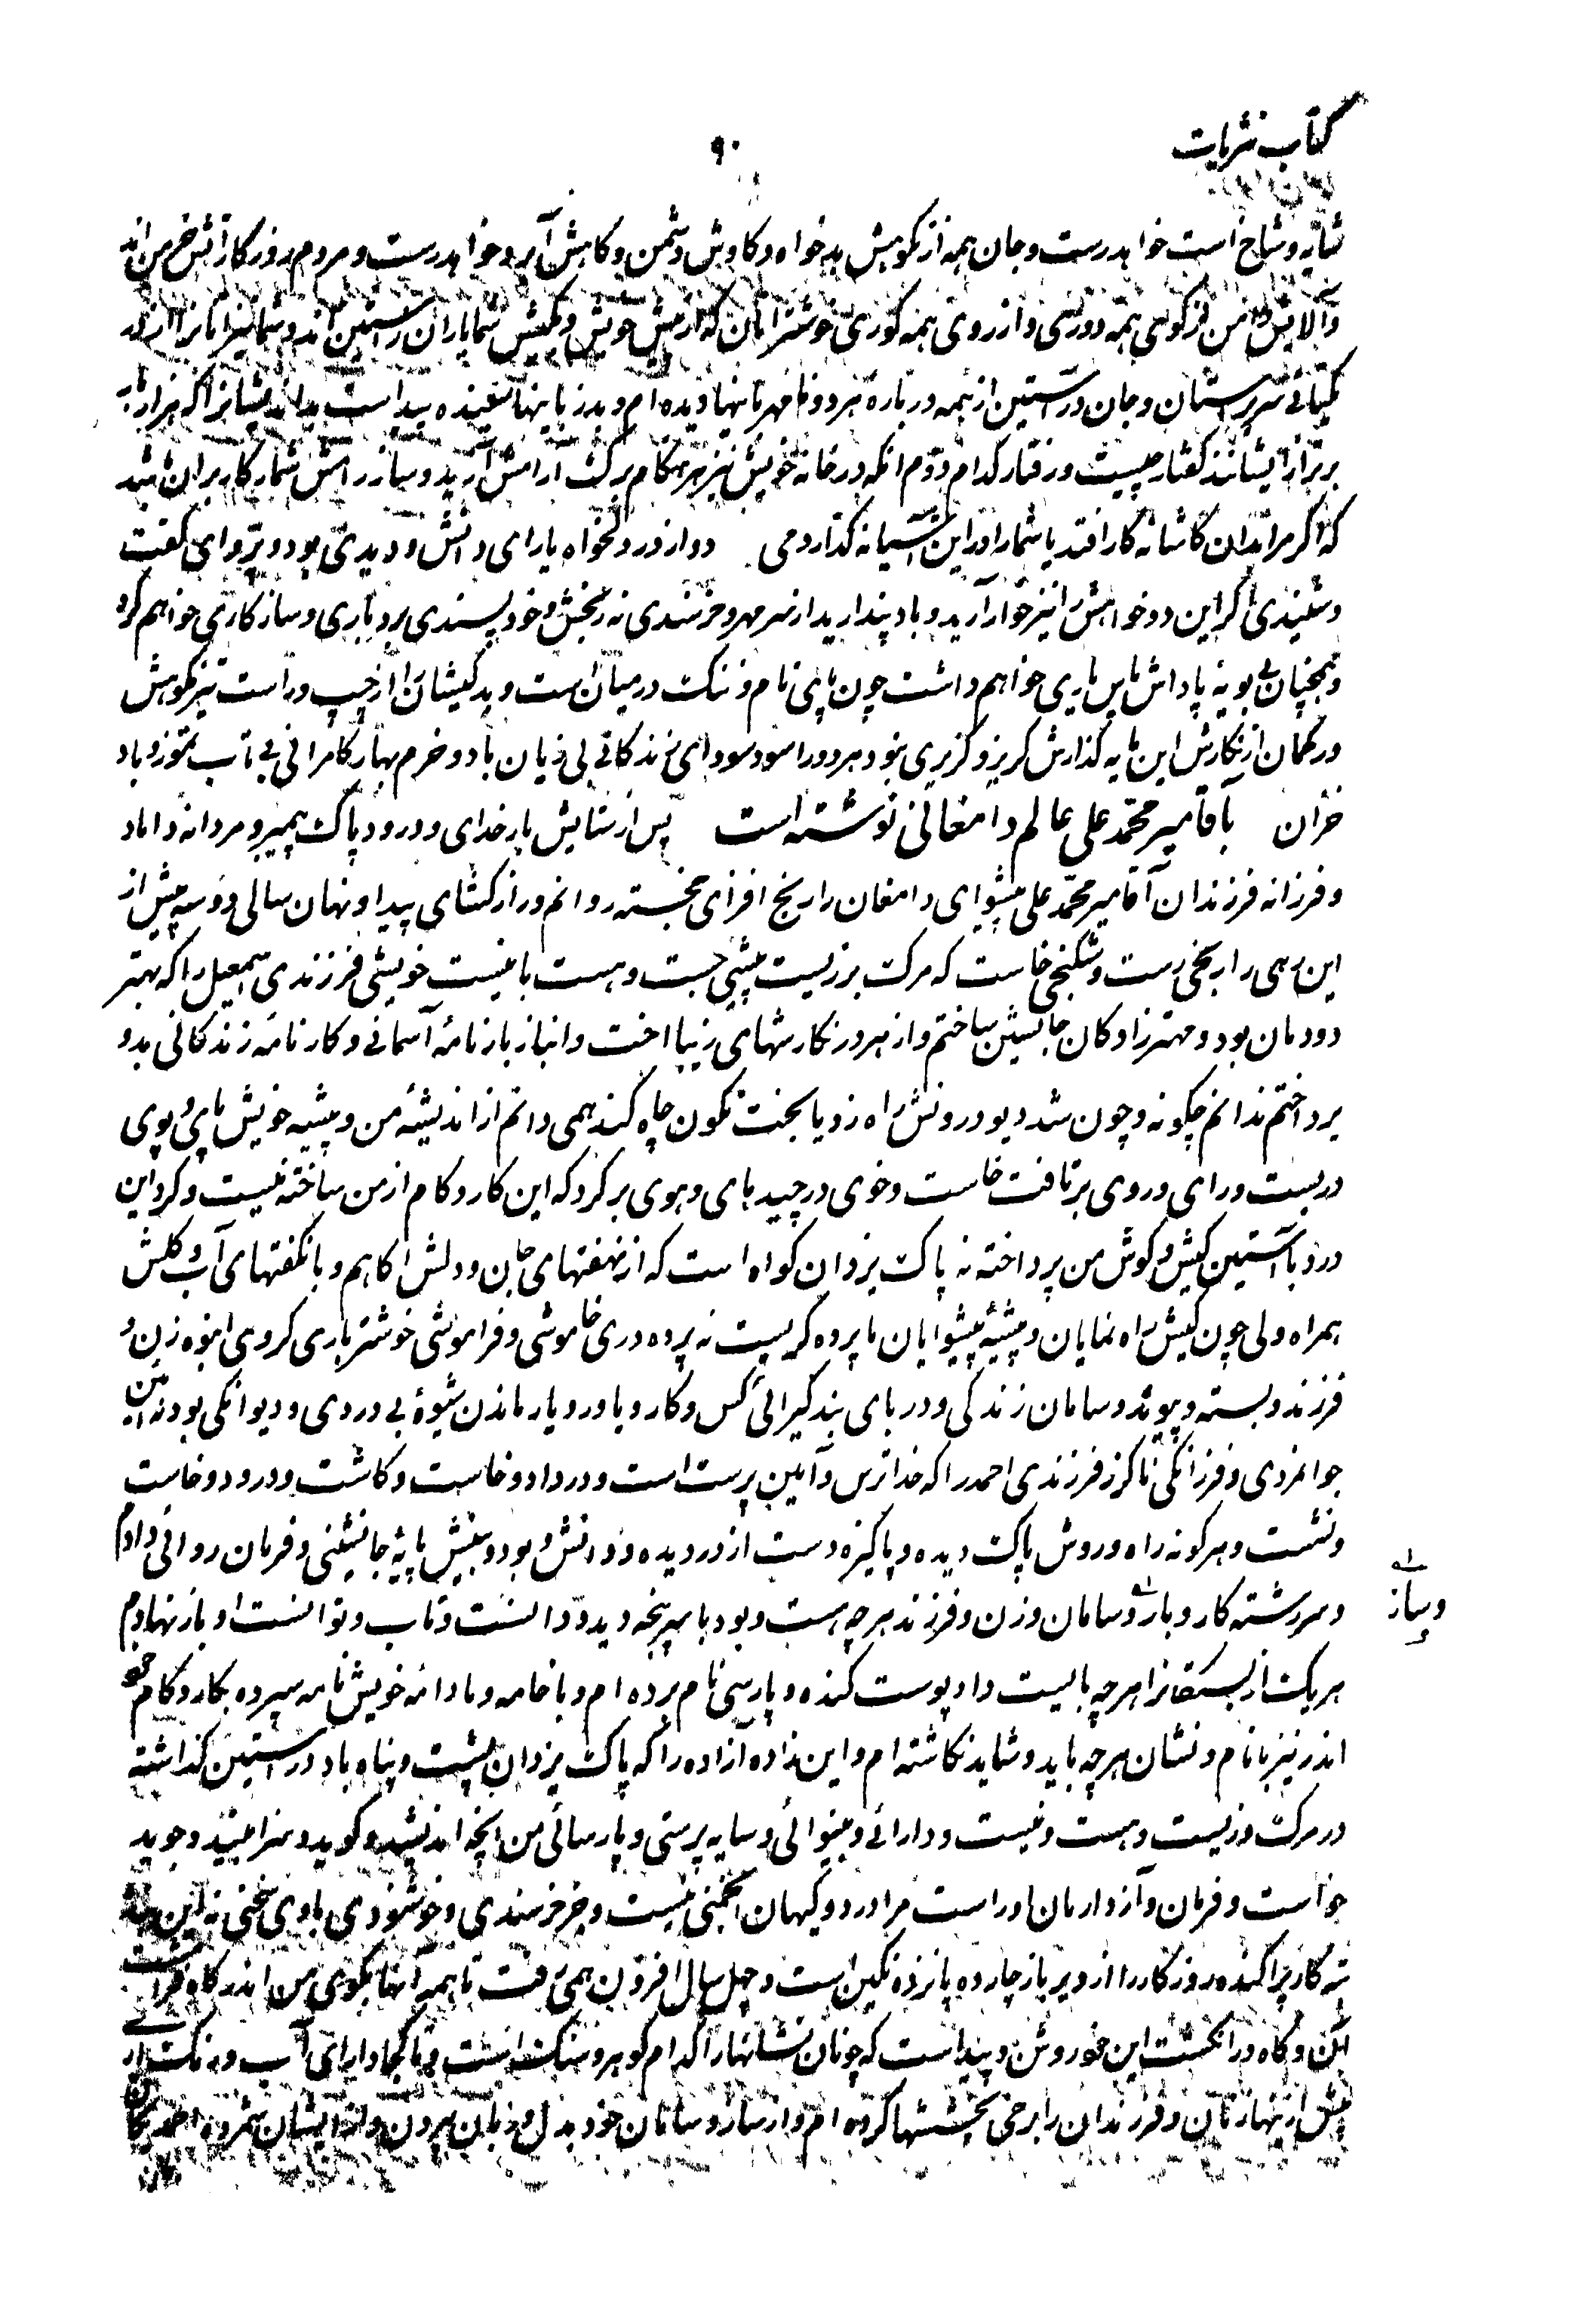 کتاب نثریات
۹۰
شایه و شاخ است خواهد رست و جان همه از نکوهش بدخواه و کاوش دشمن و کاهش آبرو خواهد رست و مردم روزکار آتش خرمن اند
و آلایش دامن نزکوی همه دوری و از روی همه کوری خوشتر اینان که از میش خویش و کیش شما یاران راستین اند و شما نیز اینانرا از در
کیهانی سرپرستان و جان در آستین از همه درباره هر دو نامهربانیها دیده ام و بدزبانیها شنیده پیداست بیدانشانرا که هزار بار
برتر از ایشانند کفتار چیست و رفتار کدام دوم انکه در خانه خویش نیز هر هنکام برک آرامش آرید و ساز رامش شمار کار بران باشد
که اکر مرا بدان کاشانه کار افتد یا شما را در این آشیانه کذار و می دو از در دلخواه یارای دانش و دیدی بود و پروای کفت
و شنیدی اکر این دو خواهش را نیز خوار آرید و باد پندارید از سر مهر و خرسندی نه رنجش و خودپسندی بردباری و سازکاری خواهم کرد
و همچنان بی بویه پاداش پاس یاری خواهم داشت چون پای نام و ننک در میان است و بدکیشان را از چپ و راست تیر نکوهش
در کمان از نکارش این مایه کذارش کریز و کزیری نبود هر دو را سود سودای زندکانی بی زیان باد و خرم بهار کامرانی بی تاب تموز و باد
خزان بآقا میر محمد علی عالم دامغانی نوشته است پس از ستایش بار خدای و درود پاک پیمبر و مردانه داماد
و فرزانه فرزندان آقا میر محمد علی پیشوای دامغان را رنج افزای خجسته روانم و رازکشای پیدا و نهان سالی دو سه پیش از
این رهی را رنجی رست و شکنجی خاست که مرک بر زیست پیشی جست و هست با نیست خویشی فرزندی اسمعیل را که بهتر
دودمان بود و مهتر زادکان جانشین ساختم و از هر در نکارشهای زیبا اخت و انباز باز نامه آسمانی و کارنامه زندکانی بدو
پرداختم ندانم چکونه و چون شد دیو درونش راه زد یا بخت نکون چاه کند همی دانم از اندیشه من و پیشه خویش پای و پوی
در بست و رای و روی برتافت خاست و خوی در چید های و هوی برکرد که این کار و کام از من ساخته نیست و کرد این
درد با آستین کیش و کوش من پرداخته نه پاک یزدان کواه است که از نهفتهای جان و دلش آکاهم و با نکفتهای آب و کلش
همراه ولی چون کیش راه نمایان و پیشه پیشوایان ما پرده کریست نه پرده دری خاموشی و فراموشی خوشتر باری کروهی انبوه زن و
فرزند و بسته و پیوند و سامان زندکی و در بای بند کیرائی کس و کار و یاور و یار ماندن شیوه بی دردی و دیوانکی بود نه آئین
جوانمردی و فرزانکی ناکزر فرزندی احمد را که خداترس و آئین پرست است و در داد و خاست و کاشت و درود و خاست
و نشست و هر کونه راه و روش پاک دیده و پاکیزه دست از در دیده و دانش و بود و بینش پایه جانشینی و فرمان روائی دادم
و سررشته کار و بار و سامان و زن و فرزند هر چه هست و بود با سرپنجه دید و دانست و تاب و توانست او باز نهادم
و ساز
هر یک از بستکانرا هر چه بایست داد پوست کنده و پارسی نام برده ام و با خامه و مادامه خویش نامه سپرده بکار و کام خود
اندر نیز با نام و نشان هر چه باید و شاید نکاشته ام و این زاده آزاده را که پاک یزدان پشت و پناه باد در راستین کذاشته
در مرک و زیست و هست و نیست و دارائی و بینوائی و سایه پرستی و پارسائی من آنچه اندیشد و کوید و سزا بیند و جوید
خواست و فرمان و آز و ارمان او راست مرا در دو کیهان انجمنی نیست و جز خرسندی و خوشنودی با وی سخنی نه این
نه کار پراکنده روزکار را از دیر باز چارده پانزده نکین است و چهل سال افزون همی رفت تا همه آنها بکوی من اندر کاه فرا
کن و کاه در انکشت این خود روشن و پیداست که چونان نشانها را کدام کوهر و سنک است و تا کجا دارای آب و رنک از
پیش از اینها زنان و فرزندان را برخی بخششها کرده ام و از ساز و سامان خود بدل و زبان بیرون و از ایشان شمرده احمد